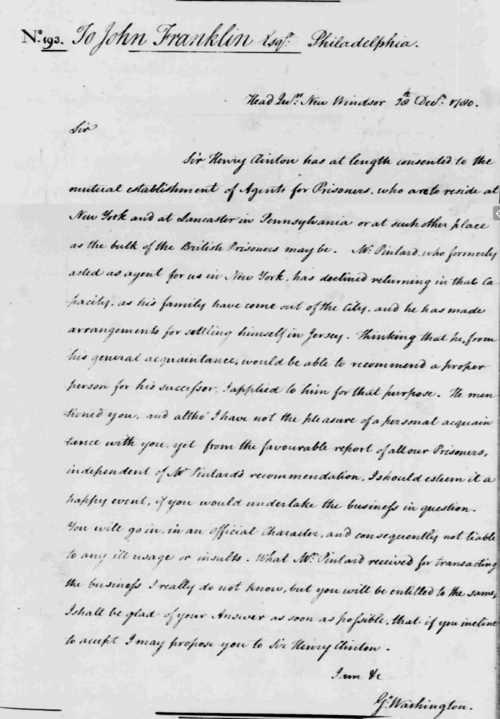 No. 193. To John Franklin Esqr. Philadelphia.
Head Qurs. New Windsor 28th Decr. 1780.
Sir
Sir Henry Clinton has at length consented to the
mutual establishment of Agents for Prisoners, who are to reside at
New York and at Lancaster in Pennsylvania or at such other place
as the bulk of the British Prisoners may be. Mr. Pintard, who formerly
acted as agent for us in New York, has declined returning in that Ca-
pacity, as his family have come out of the City, and he has made
arrangements for settling himself in Jersey. Thinking that he, from
his general acquaintance, would be able to recommend a proper
person for his successor, I applied to him for that purpose. He men
tioned you, and altho' I have not the pleasure of a personal acquain
tance with you, yet from the favourable report of all our Prisoners,
independent of Mr. Pintard's recommendation, I should esteem it a
happy event, if you would undertake the business in question.
You will go in, in an official Character, and consequently not liable
to any ill usage or insults. What Mr. Pintard received for transacting
the business I really do not know, but you will be entitled to the same,
I shall be glad of your Answer as soon as possible, that if you incline
to accept I may propose you to Sir Henry Clinton.
I am &c
Go. Washington.